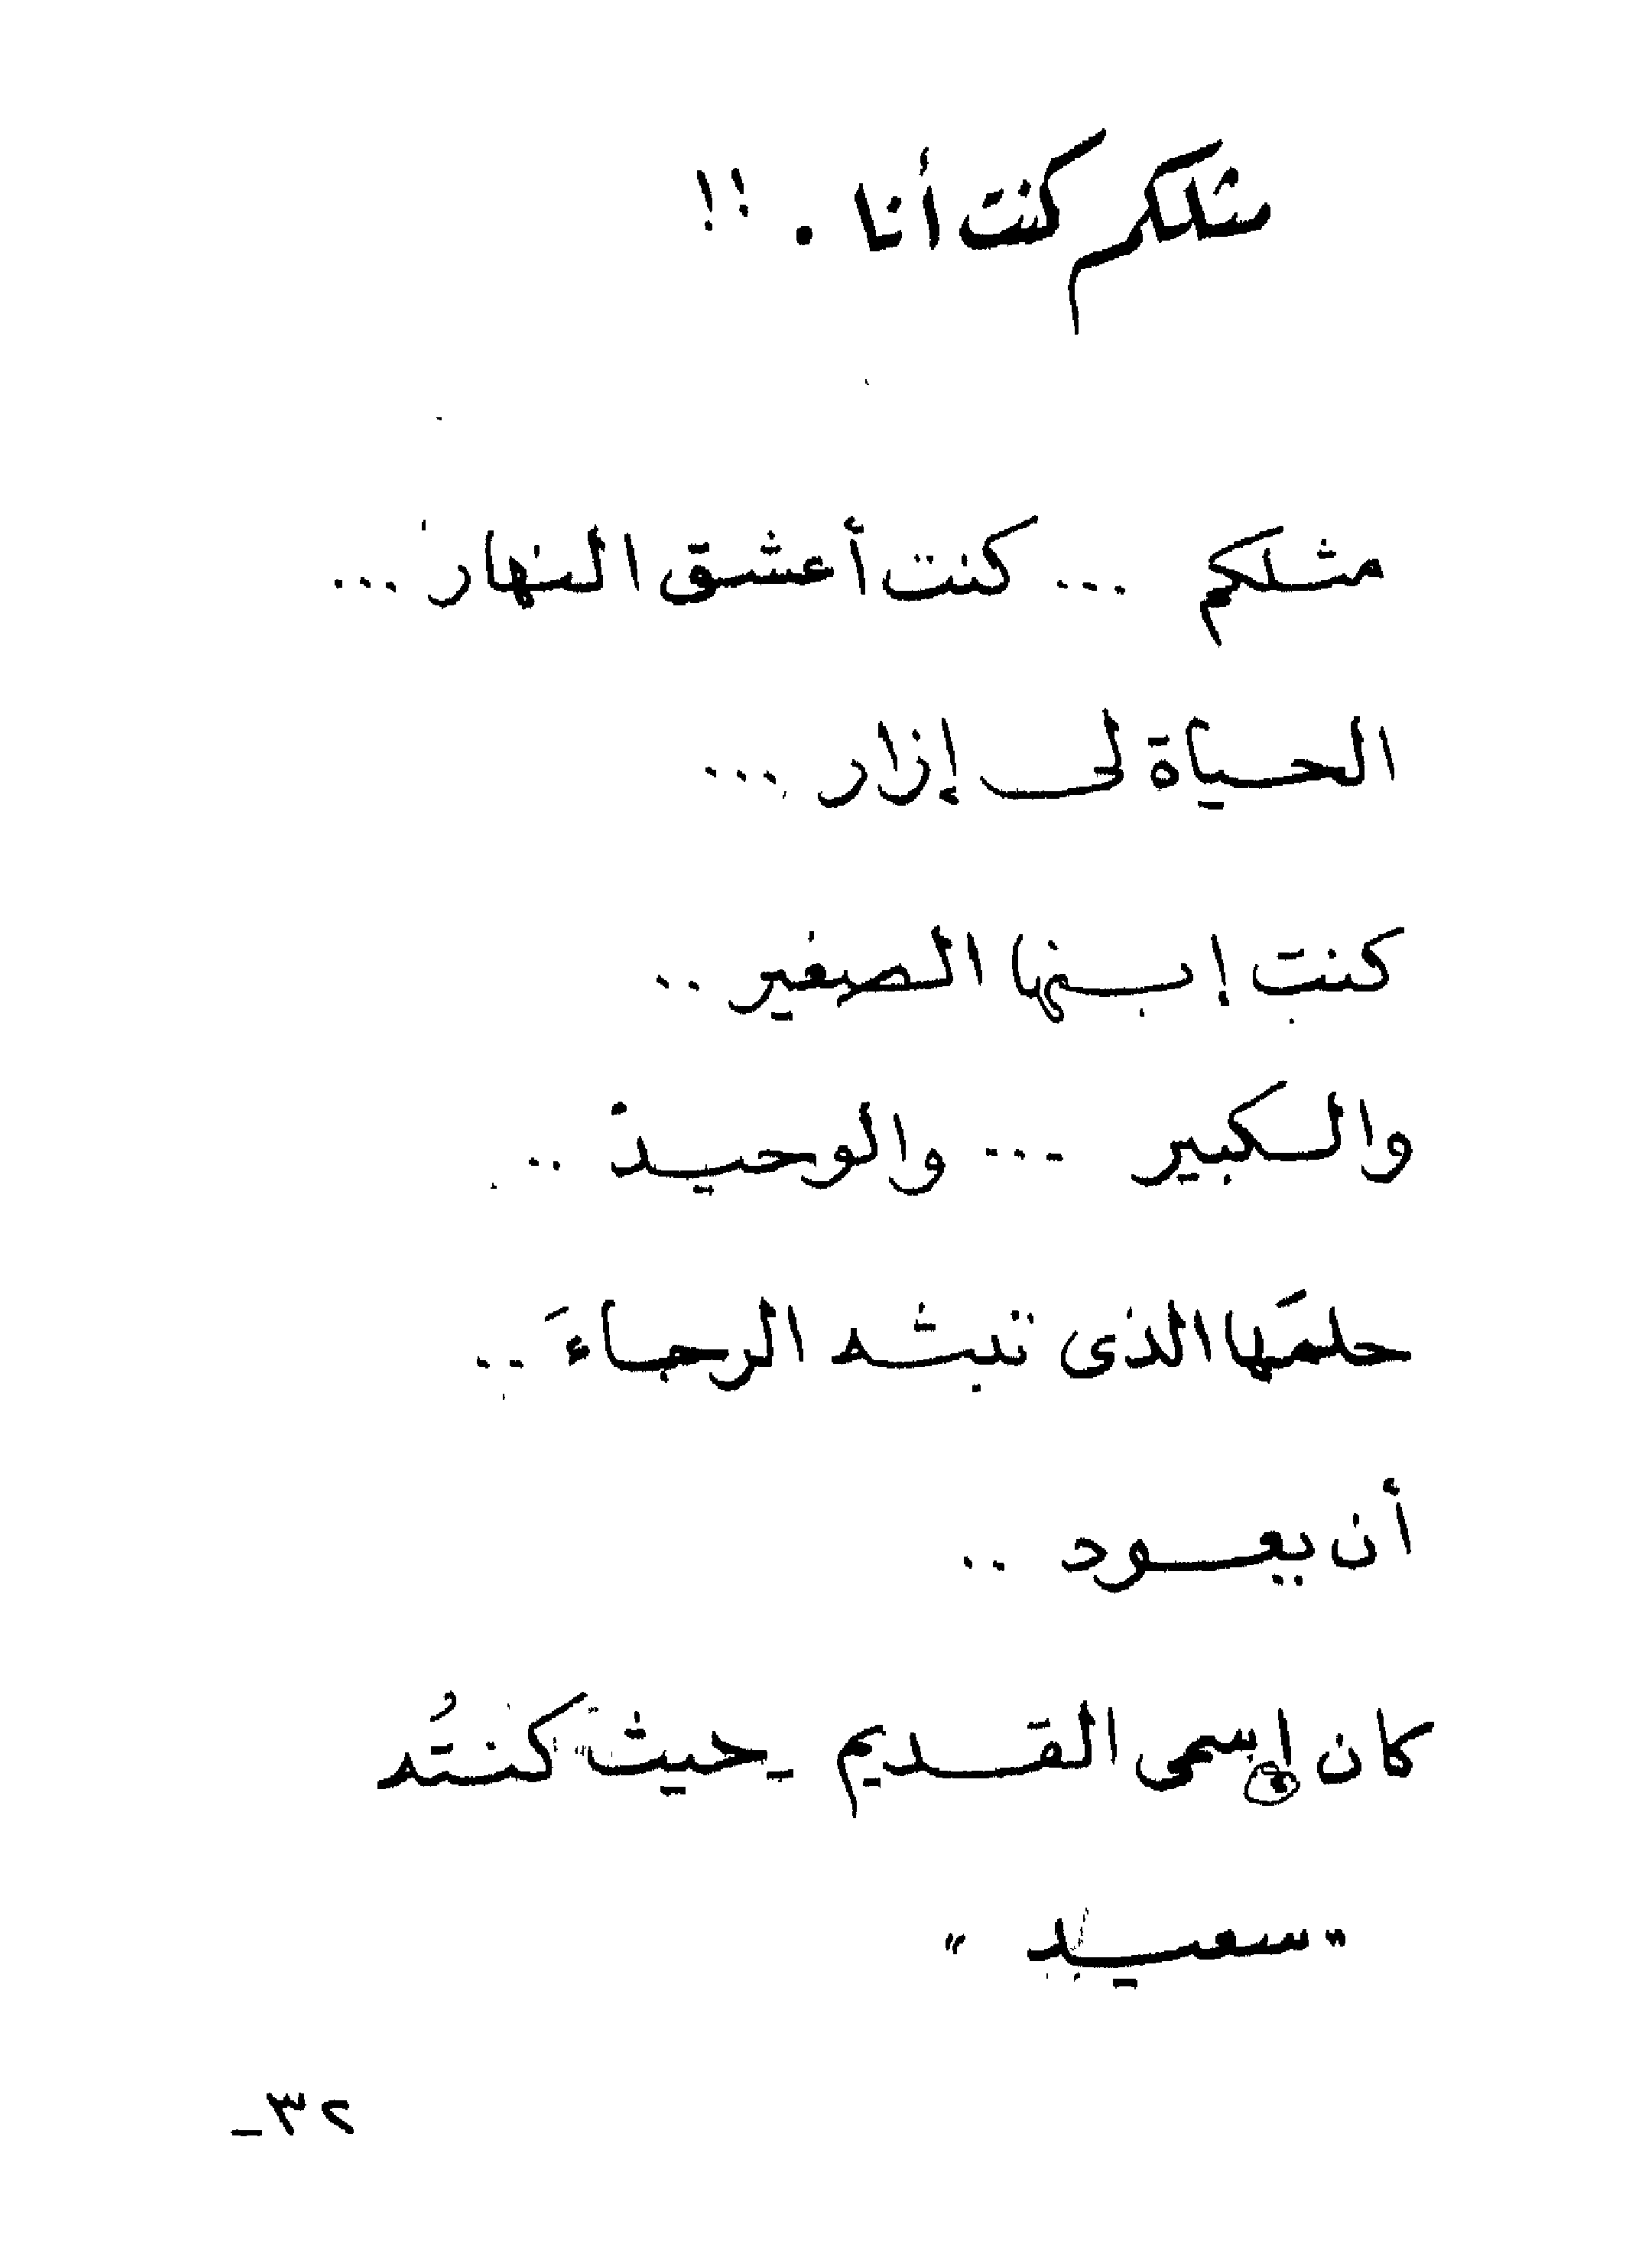 مثلكم كنت أنا . !!
مثلكم ... كنت أعشق النهار ...
الحياة لى إزار ...
كنت إبنها الصغير ..
والكبير ... والوحيد ..
حلمَها الذى تبثه الرجاءَ ..
أن يعود ..
كان إسمى القديم - حيثَ كنتُه
"سعيد"
٢٣-